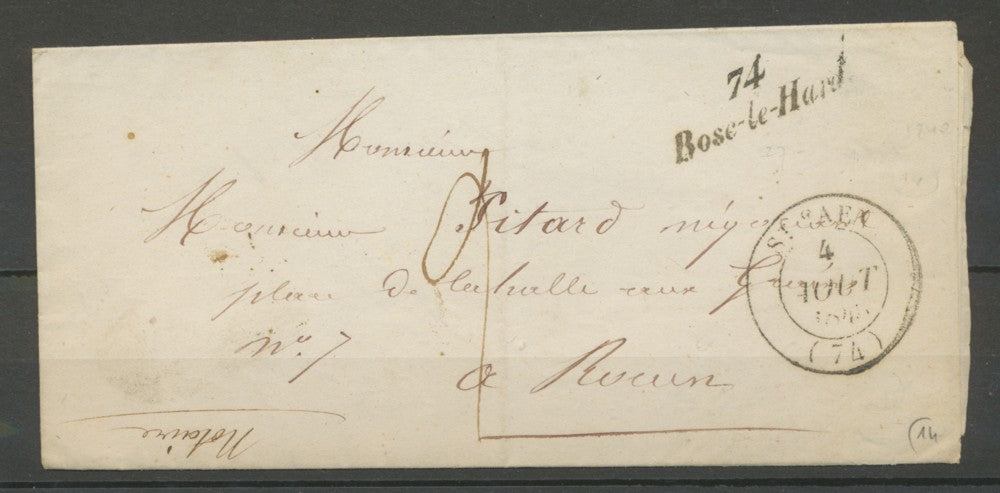 74
Bosc-le-Hard
Monsieur
Monsieur Pitard
place de la halle aux
No. 7
a Rouen
ST. SAEN
4
AOUT
(74)
Notaire
14